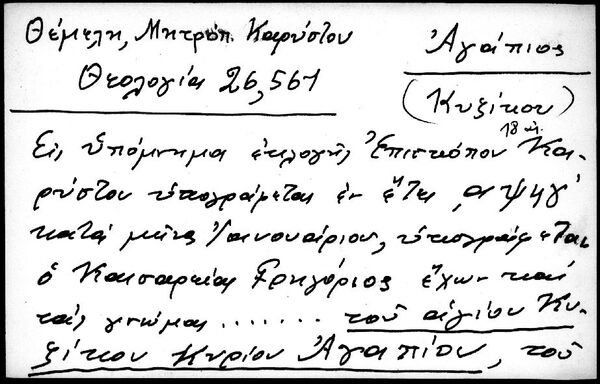 Θέμελη, Μητρόπ. Καρύστου
Θεολογία 26,561
Ἀγάπιος
(Κυζίκου)
18 αἰ.
Εἰς Ὑπόμνημα ἐκλογῆς Ἐπισκόπου Κα-
ρύστου ὑπογράφεται ἐν ἔτει ,αψνγ'
κατὰ μῆνα Ἰαννουάριον, ὑπογράφεται
ὁ Καισαρείας Γρηγόριος ἔχων καὶ
τὰς γνώμας ....... τοῦ ἁγίου Κυ-
ζίκου Κυρίου Ἀγαπίου, τοῦ